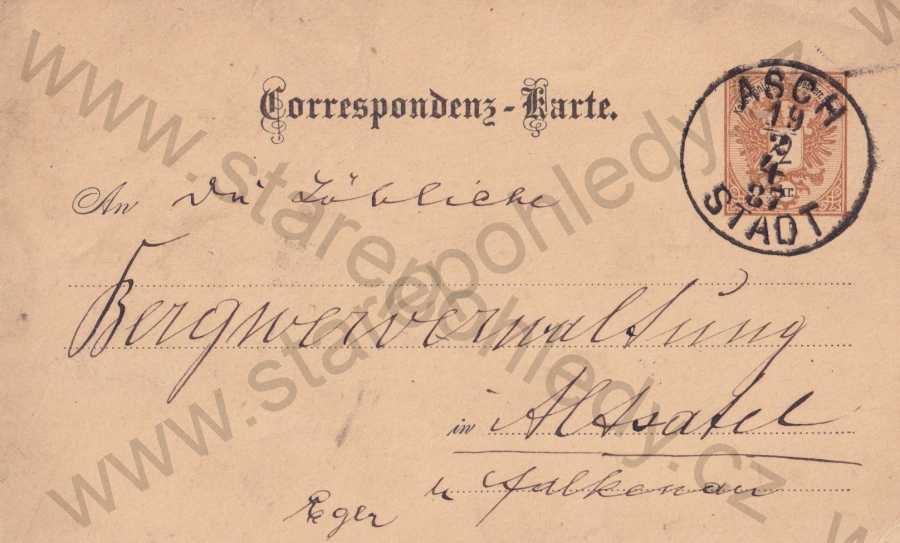 Correspondenz-Karte.
ASCH
19
2
4
87
STADT
An Die Löbliche
Bergwerverwaltung
in Altsatel
b Falkenau
Eger
www.starepohledy.cz
www.starepohledy.cz